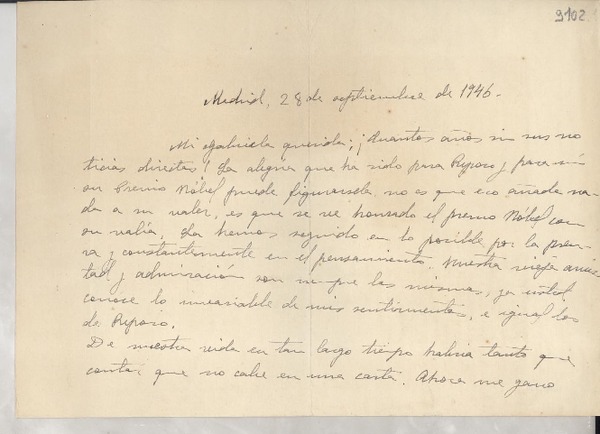 9102
Madrid, 28 de septiembre de 1946.
Mi Gabriela querida: ¡Cuantos años sin sus no
ticias directas! La alegria que ha sido para Reposo y para mi
su Premio Nóbel puede figurarsela, no es que eso añada na-
da a su valer, es que se ve honrado el premio Nóbel con
su valía. La hemos seguido en lo posible por la pren-
sa y constantemente en el pensamiento. Nuestra vieja amis-
tad y admiración son siempre las mismas, ya usted
conoce lo invariable de mis sentimientos, e igual los
de Reposo.
De nuestra vida en tan largo tiempo habria tanto que
contar que no cabe en una carta. Ahora me gano